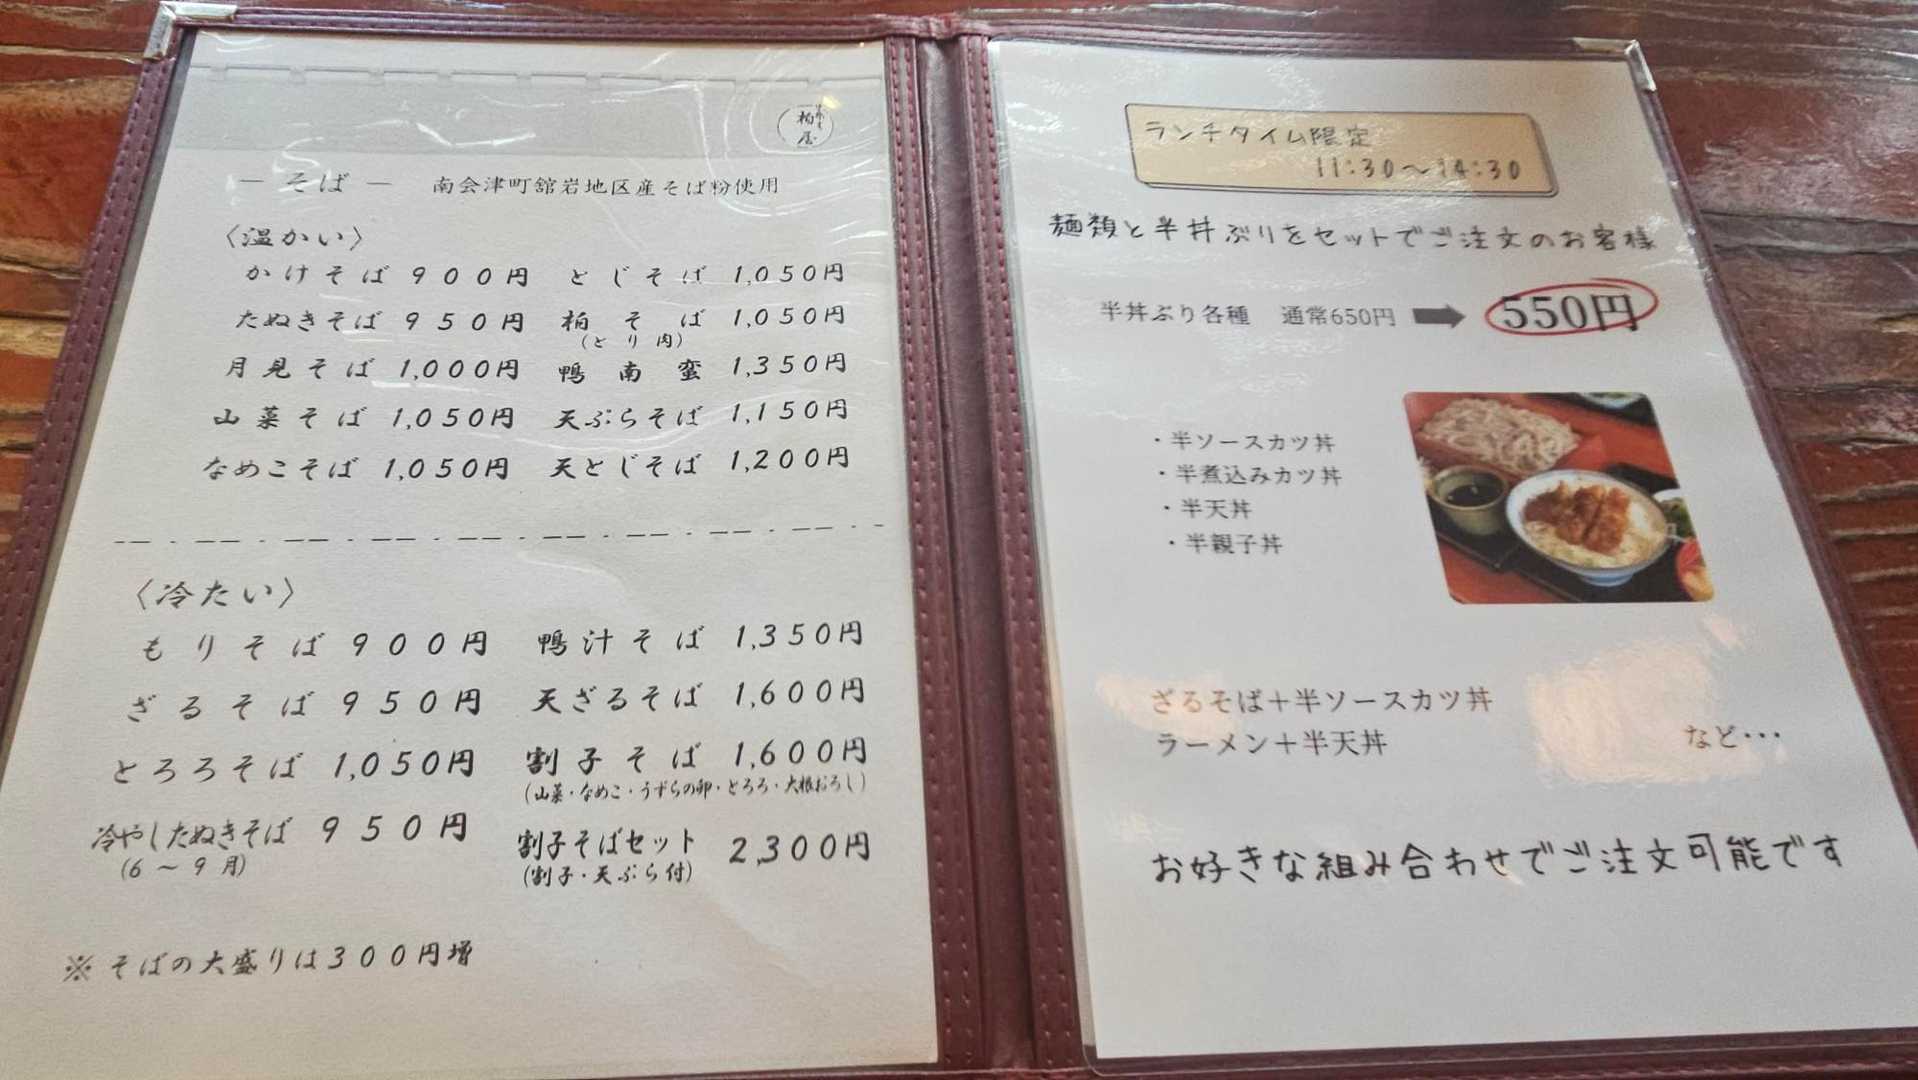 柏屋
― そば ― 南会津町舘岩地区産そば粉使用
〈温かい〉
かけそば 900円 とじそば 1,050円
たぬきそば 950円 柏そば 1,050円
(とり肉)
月見そば 1,000円 鴨南蛮 1,350円
山菜そば 1,050円 天ぷらそば 1,150円
なめこそば 1,050円 天とじそば 1,200円
〈冷たい〉
もりそば 900円 鴨汁そば 1,350円
ざるそば 950円 天ざるそば 1,600円
とろろそば 1,050円 割子そば 1,600円
(山菜・なめこ・うずらの卵・とろろ・大根おろし)
冷やしたぬきそば 950円 割子そばセット 2,300円
(6～9月) (割子・天ぷら付)
※そばの大盛りは300円増
ランチタイム限定
11:30～14:30
麺類と半丼ぶりをセットでご注文のお客様
半丼ぶり各種 通常650円 ➡ 550円
・半ソースカツ丼
・半煮込みカツ丼
・半天丼
・半親子丼
ざるそば＋半ソースカツ丼
ラーメン＋半天丼 など･･･
お好きな組み合わせでご注文可能です